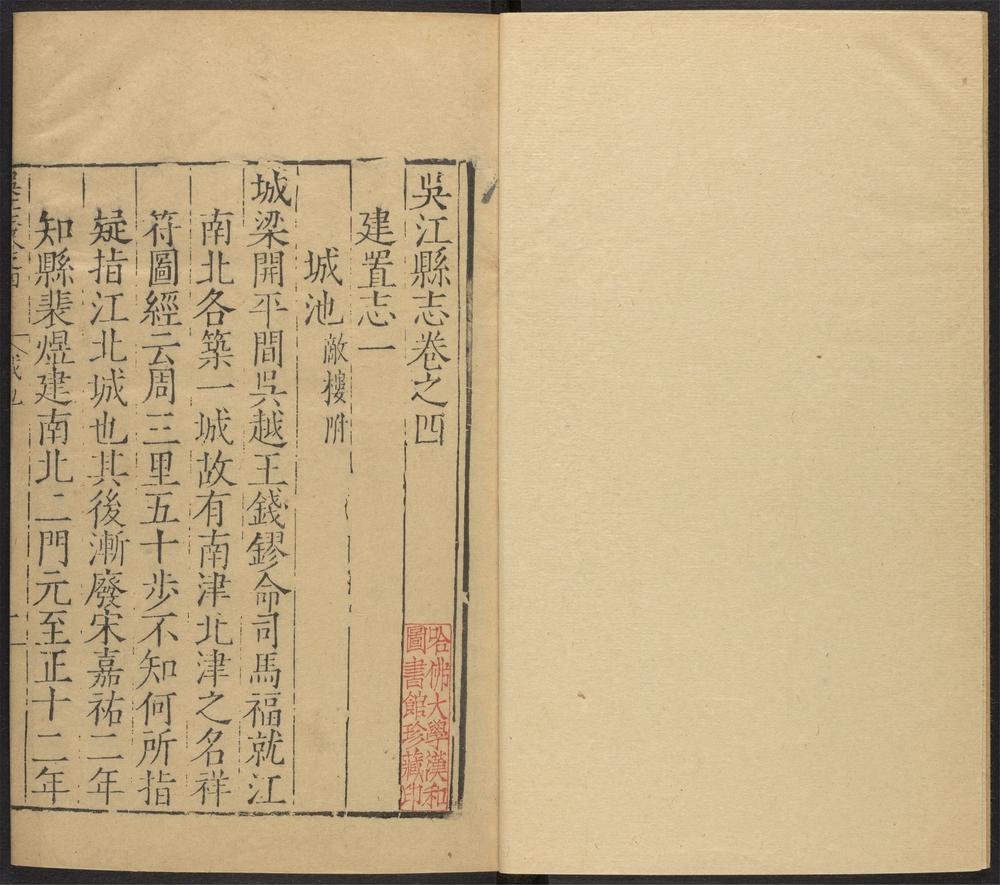 吳江縣志卷之四
建置志一
城池敵樓附
城梁開平間吳越王錢鏐命司馬福就江
南北各築一城故有南津北津之名祥
符圖經云周三里五十步不知何所指
疑指江北城也其後漸廢宋嘉祐二年
知縣裴煜建南北二門元至正十二年
哈佛大學漢和
圖書館珍藏印